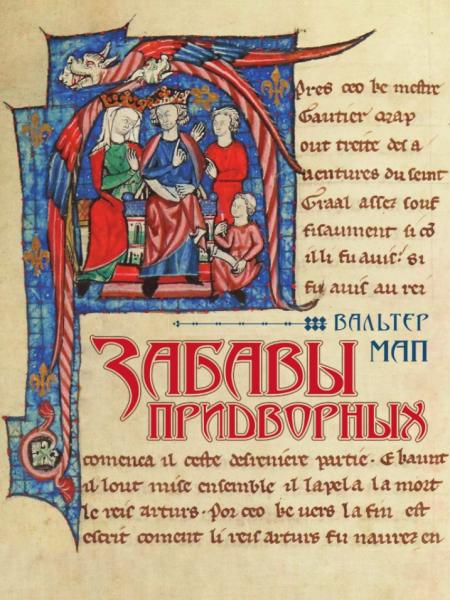 Pres ceo ke mestre
Gautier Map
out treite des a
uentures du seint
Graal assez souf
fisaument si cō
il li fu auis. si
fu auis au rei
ВАЛЬТЕР
МАП
ЗАБАВЫ
ПРИДВОРНЫХ
comenca il ceste desreniere partie. E kaunt
il lout mise ensemble il lapela la mort
le reis arturs. Por ceo ke uers la fin est
escrit coment li reis arturs fu naurez en